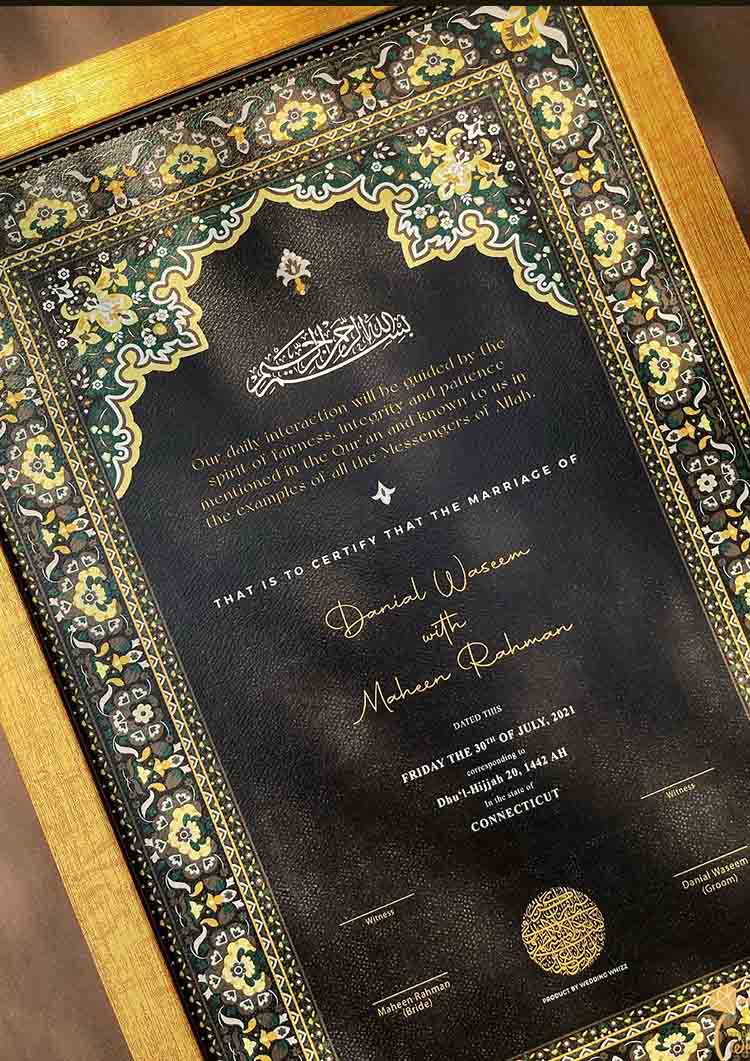 بسم الله الرحمن الرحيم
Our daily interaction will be guided by the
spirit of fairness, Integrity and patience
mentioned in the Qur'an and known to us in
the examples of all the Messengers of Allah.
THAT IS TO CERTIFY THAT THE MARRIAGE OF
Danial Waseem
with
Maheen Rahman
DATED THIS
FRIDAY THE 30TH OF JULY, 2021
corresponding to
Dhu'l-Hijjah 20, 1442 AH
In the state of
CONNECTICUT
Witness
Witness
Danial Waseem
(Groom)
Maheen Rahman
(Bride)
PRODUCT BY WEDDING WHIZZ